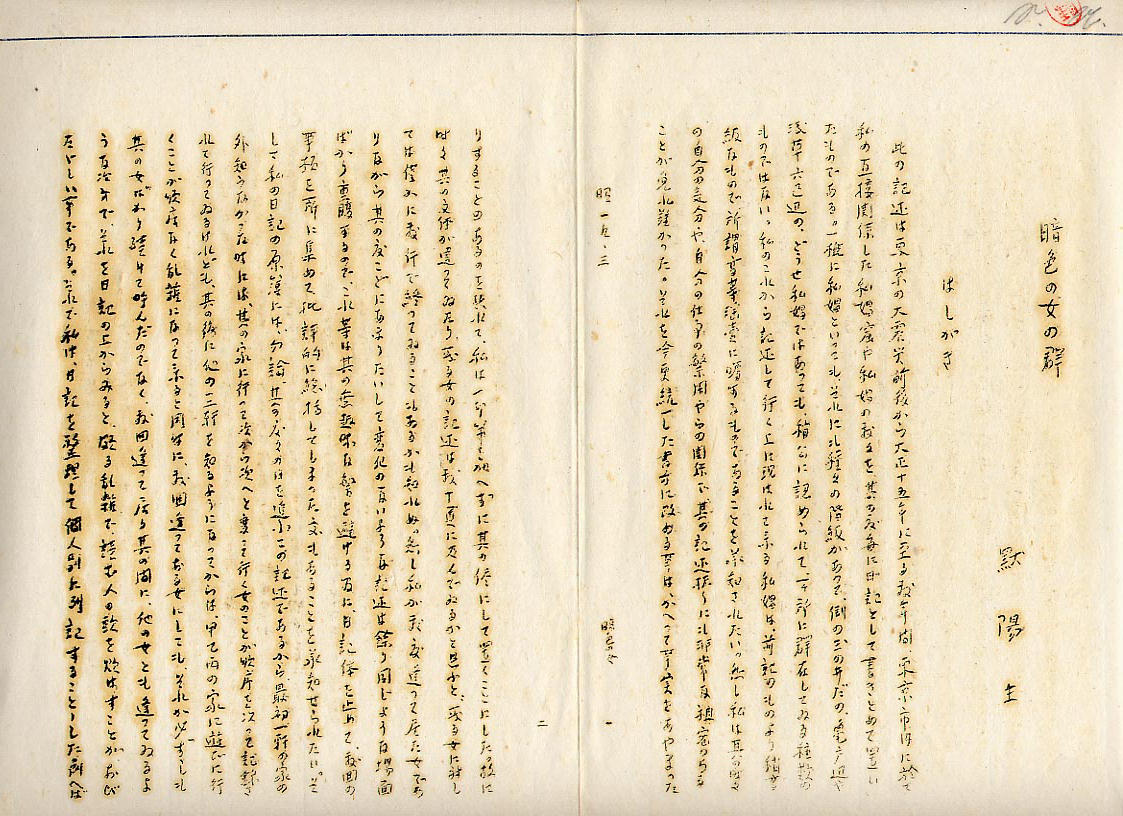 暗色の女の群
黙陽生
はしがき
此の記述は東京の大震災前後から大正十五年に至る数年間、東京市内に於て
私の直接関係した私娼窟や私娼の数々を其の度毎に日記として書きとめて置い
たものである。一概に私娼といっても、それにも種々の階級があって、例の玉の井だの、亀戸辺や
浅草十六辺の、どうせ私娼ではあっても、稍公に認められて、一ヶ所に群在してゐる種類の
ものではない。私のこれから記述して行く上に現はれて来る私娼は前記のものより稍高
級なもので、所謂高等淫売に属するものであることを承知されたい。然し私は其の
の自分の気分や、自分の仕事の繁閑やらの関係で、其の記述振りにも非常な粗密のある
ことが免れ難かった。それを今更統一した書方に改める事はかへって事実をあやまった
昭一五、三
暗色女 一
りすることのあるのを恐れて、私は一切筆を加へずに其の儘にして置くことにした。故に
時々其の文体が違ってゐたり、或る女の記述は数十頁に及んでゐるかと思ふと、或る女に対し
ては僅かに数行で終ってゐることもあるかも知れぬ。然し私が数度逢って居た女であ
りながら其の度ごとにあまりたいして変化のないような記述は余り同じような場面
ばかり重複するので、これ等は其の無趣味な繁を避ける為に、日記体を止めて、数回の
事柄を一所に集めて、批評的に総括してしまった文もあることを承知せられたい。そ
して私の日記の原簿には、勿論、其の度々分けを追ふての記述であるから、最初一軒の家の
外知らなかった時には、其の家に行って次から次へと変って行く女のことが順序を次って記録さ
れて行ってゐるけれども、其の後に他の二三軒を知るようになってからは甲乙丙の家に遊びに行
くことが順序なく乱雑になって来ると同時に、数回逢ってゐる女にしても、それが必ずしも
其の女ばかり続けて呼んだのでなく、数回逢って居る其の間に、他の女とも逢ってゐるよ
うな次第で、それを日記の上からみると、頗る乱雑で読む人の頭を煩はすことがおび
たゞしい事である。それで私は、日記を整理して個人別に列記することゝした。例へば
二